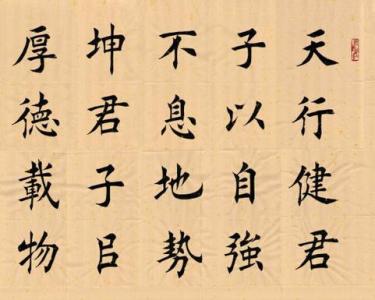 天行健君
子以自強
不息地勢
坤君子㠯
厚德載物